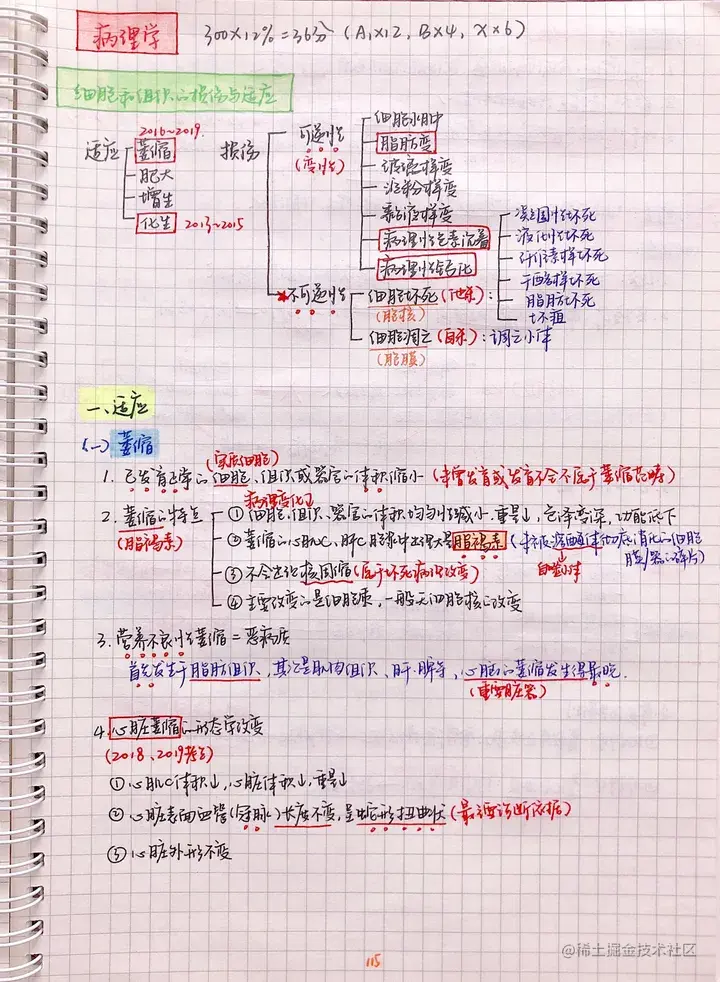 病理学 300×12%=36分(A₁×12, B×4, X×6)
细胞和组织的损伤与适应
2016~2019
适应 萎缩
肥大
增生
化生 2013~2015
损伤 可逆性
(变性)
细胞水肿
脂肪变
玻璃样变
淀粉样变
黏液样变
病理性色素沉着
病理性钙化
*不可逆性
细胞坏死(他杀):
(胞核)
凝固性坏死
液化性坏死
纤维素样坏死
干酪样坏死
脂肪坏死
坏疽
细胞凋亡(自杀):凋亡小体
(胞膜)
一、适应
(一)萎缩
(实质细胞)
1. 已发育正常的细胞、组织或器官的体积缩小(未曾发育或发育不全不属于萎缩范畴)
病理变化
2. 萎缩的特点
(脂褐素)
①细胞、组织、器官的体积均匀性减小,重量↓,色泽变深,功能低下
②萎缩的心肌C、肝C胞浆中出现大量脂褐素(未被溶酶体彻底消化的细胞
膜/器的碎片)
自噬小体
③不会出现核固缩(属于坏死病理改变)
④主要改变的是细胞质,一般无细胞核的改变
3. 营养不良性萎缩=恶病质
首先发生于脂肪组织,其次是肌肉组织、肝、脾等,心脏的萎缩发生得最晚.
(重要脏器)
4. 心脏萎缩的形态学改变
(2018、2019考了)
①心肌C体积↓,心脏体积↓,重量↓
②心脏表面血管(冠脉)长度不变,呈蛇形扭曲状(最主要诊断依据)
③心脏外形不变
115
@稀土掘金技术社区